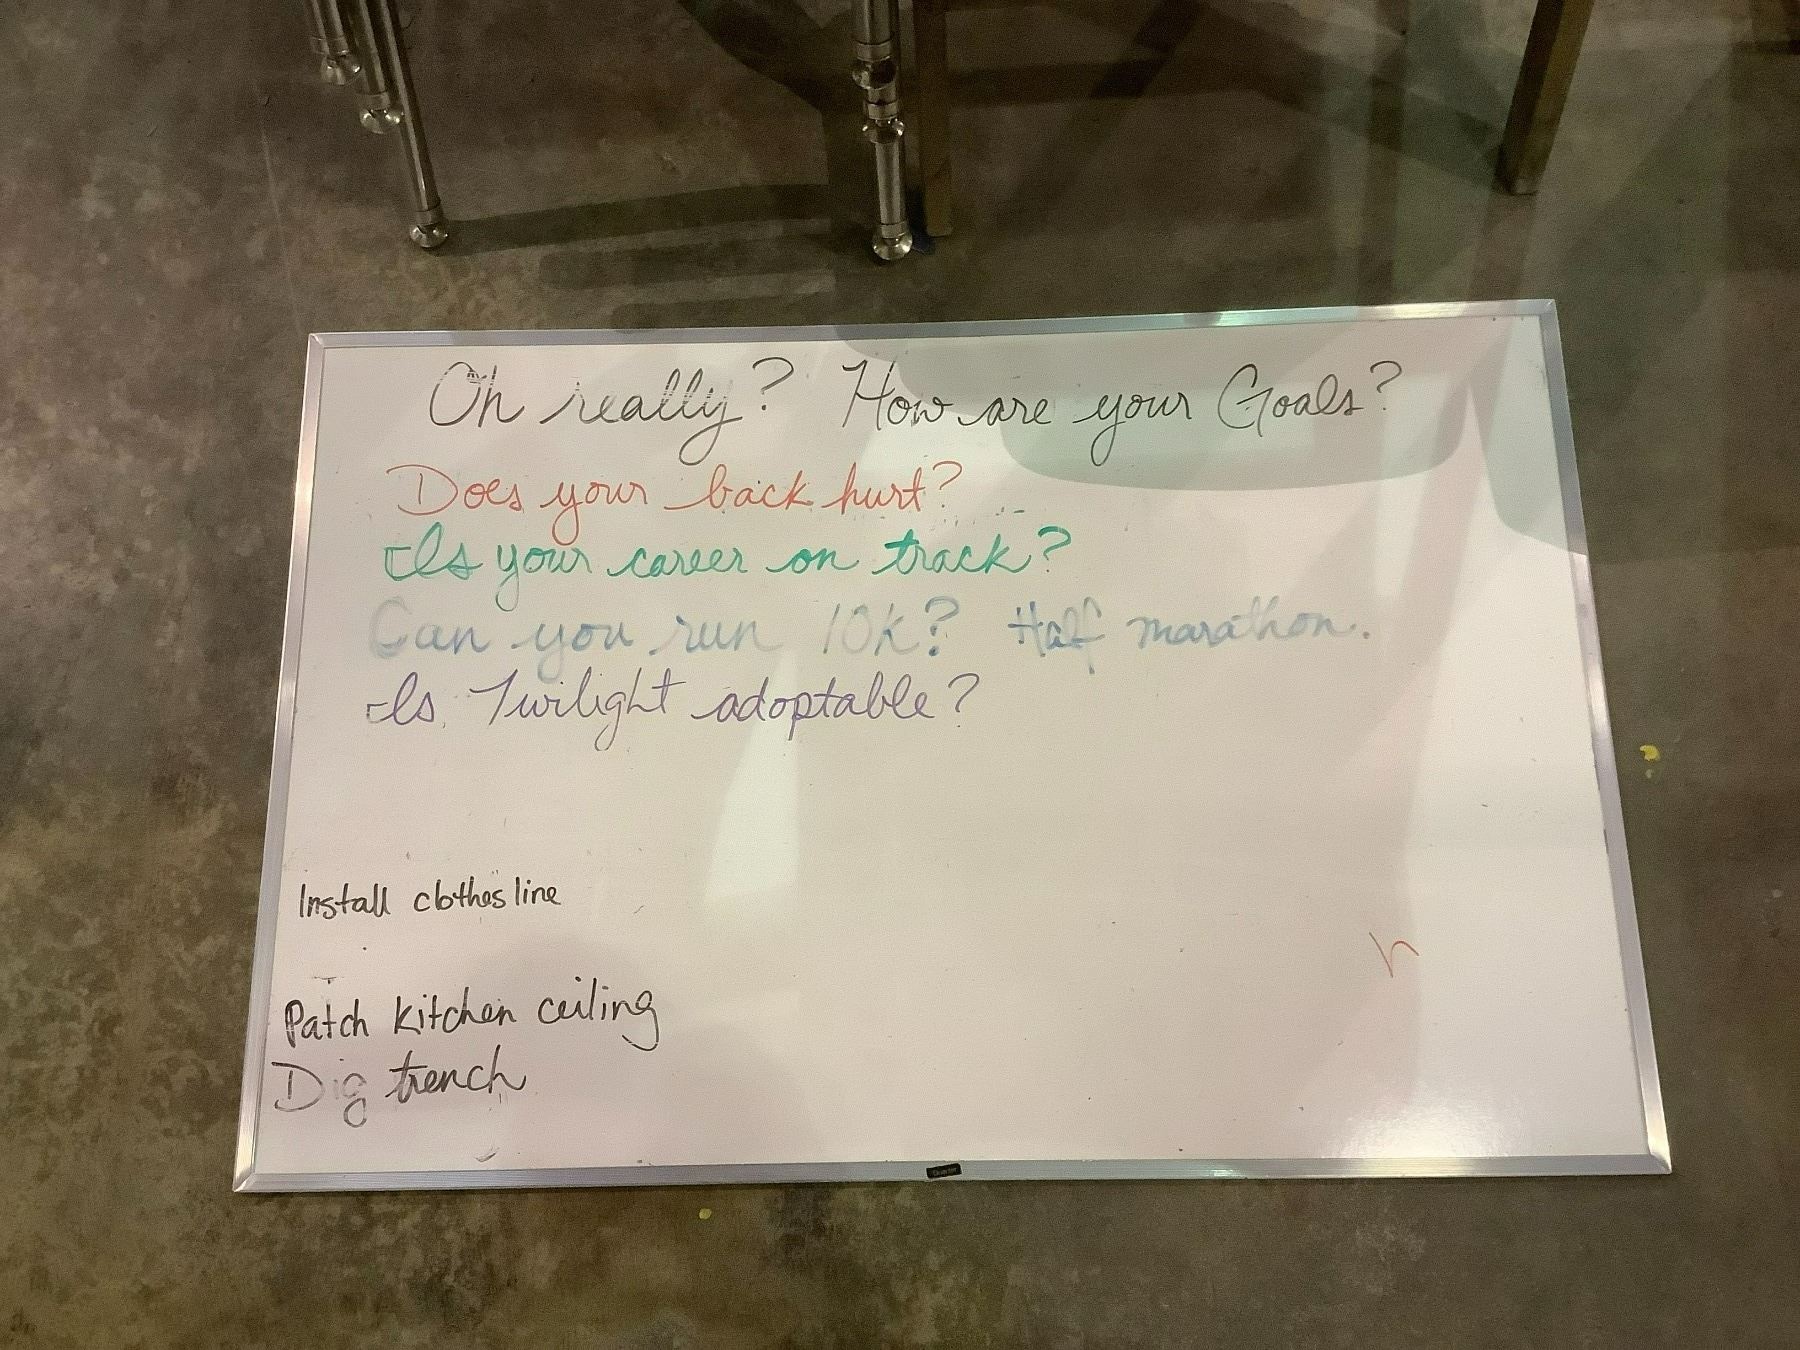 Oh really? How are your Goals?
Does your back hurt?
Is your career on track?
Can you run 10k? Half marathon.
Is Twilight adoptable?
Install clothes line
h
Patch kitchen ceiling
Dig trench